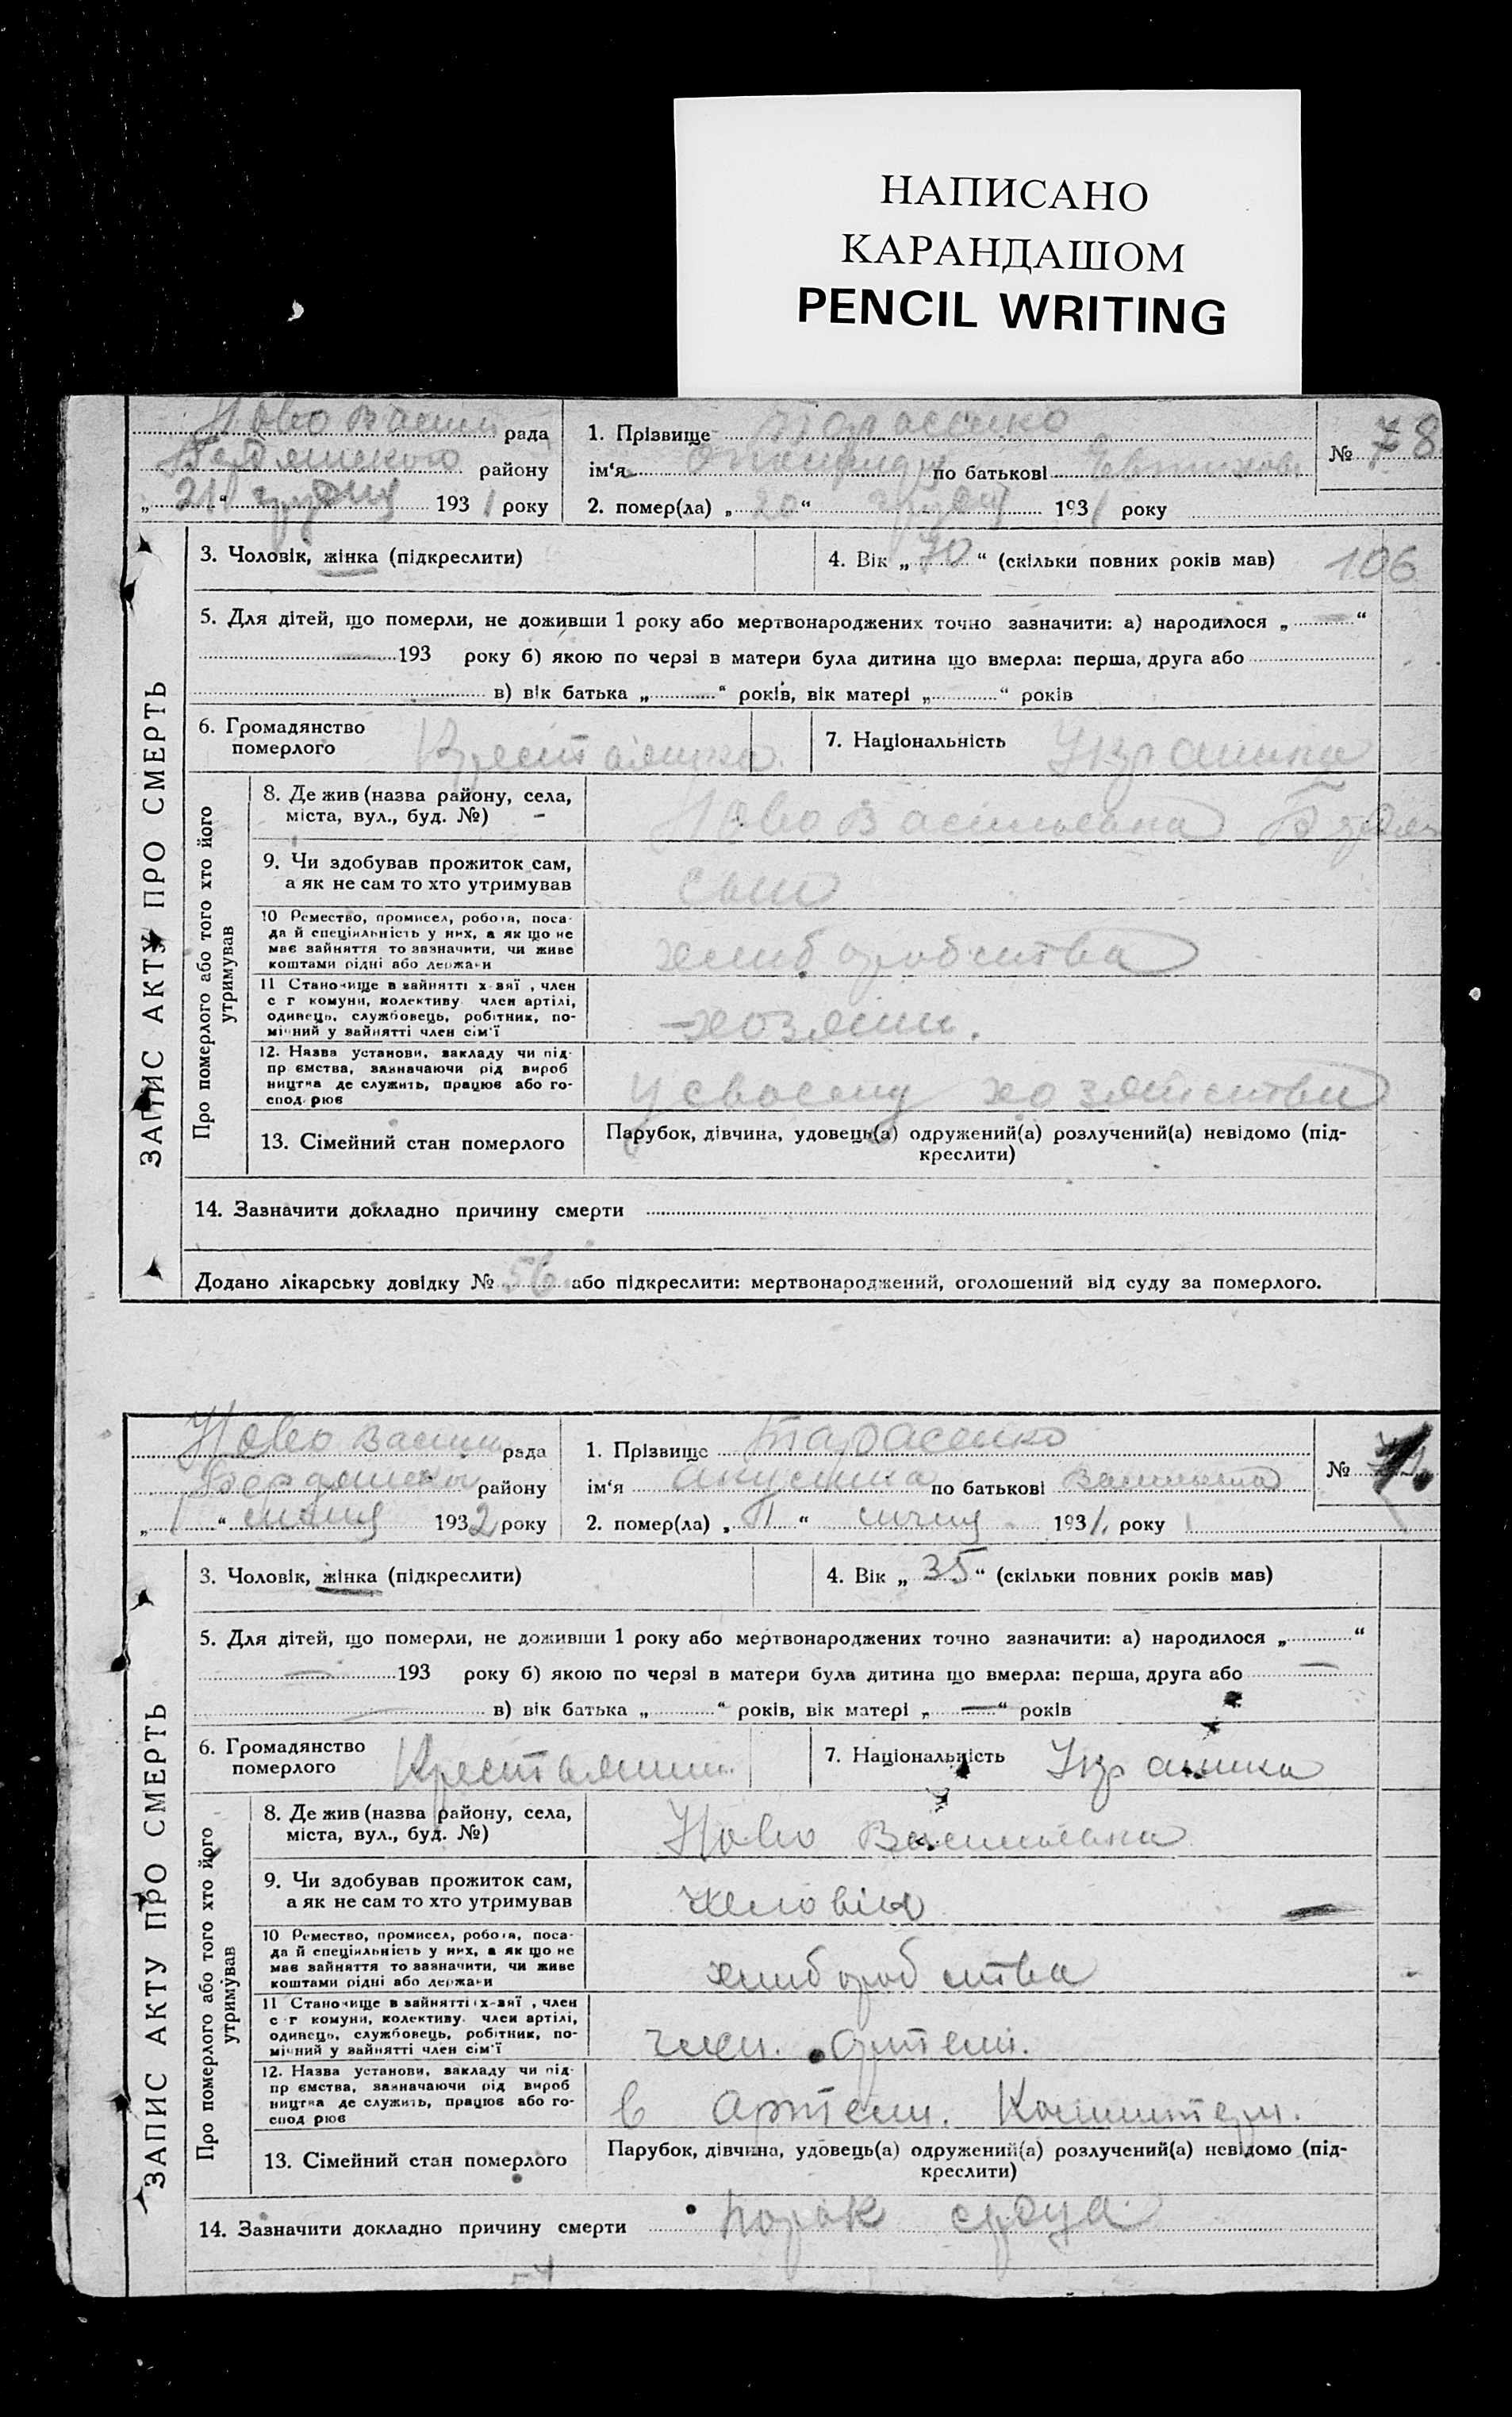 НАПИСАНО
КАРАНДАШОМ
PENCIL WRITING
Ново Васил рада
Бердянського району
„ 21 “ грудня 1931 року
1. Прізвище Тарасенко
ім‘я по батькові
2. помер(ла) „ 20 “ грудня 1931 року
№ 78
ЗАПИС АКТУ ПРО СМЕРТЬ
3. Чоловік, жінка (підкреслити)
4. Вік „ 70 “ (скільки повних років мав)
106
5. Для дітей, що померли, не доживши 1 року або мертвонароджених точно зазначити: а) народилося „ “
193 року б) якою по черзі в матери була дитина що вмерла: перша, друга або
в) вік батька „ “ років, вік матері „ “ років
6. Громадянство померлого Крестьянка
7. Національність Українка
Про померлого або того хто його утримував
8. Де жив (назва району, села,
міста, вул., буд. №)
Ново Васильевка
9. Чи здобував прожиток сам,
а як не сам то хто утримував
сын
10 Ремество, промисел, робота, поса-
да й спеціяльність у них, а як що не
має зайняття то зазначити, чи живе
коштами рідні або держави
хлиборобства
11 Становище в зайнятті х-зяї , член
с г комуни, колективу член артілі,
одинець, службовець, робітник, по-
мічний у зайнятті член сім'ї
хозяин.
12. Назва установи, закладу чи під-
пр ємства, зазначаючи рід вироб
ництва де служить, працює або го-
спод рює
у своему хозяйстви
13. Сімейний стан померлого
Парубок, дівчина, удовець(а) одружений(а) розлучений(а) невідомо (під-
креслити)
14. Зазначити докладно причину смерти
Додано лікарську довідку № 56 або підкреслити: мертвонароджений, оголошений від суду за померлого.
Ново Васил рада
району
„ 1 “ сичня 1932 року
1. Прізвище Тарасенко
ім‘я по батькові
2. помер(ла) „ “ сичня 1931. року
№
ЗАПИС АКТУ ПРО СМЕРТЬ
3. Чоловік, жінка (підкреслити)
4. Вік „ 35 “ (скільки повних років мав)
5. Для дітей, що померли, не доживши 1 року або мертвонароджених точно зазначити: а) народилося „ “
193 року б) якою по черзі в матери була дитина що вмерла: перша, друга або
в) вік батька „ “ років, вік матері „ — “ років
6. Громадянство померлого
7. Національність Українка
Про померлого або того хто його утримував
8. Де жив (назва району, села,
міста, вул., буд. №)
Ново Васильевка
9. Чи здобував прожиток сам,
а як не сам то хто утримував
10 Ремество, промисел, робота, поса-
да й спеціяльність у них, а як що не
має зайняття то зазначити, чи живе
коштами рідні або держави
хлиборобства
11 Становище в зайнятті х-зяї , член
с-г комуни, колективу член артілі,
одинець, службовець, робітник, по-
мічний у зайнятті член сім'ї
член. артели.
12. Назва установи, закладу чи під-
пр ємства, зазначаючи рід вироб
ництва де служить, працює або го-
спод рює
в артели. Коминтерн.
13. Сімейний стан померлого
Парубок, дівчина, удовець(а) одружений(а) розлучений(а) невідомо (під-
креслити)
14. Зазначити докладно причину смерти порок срдца